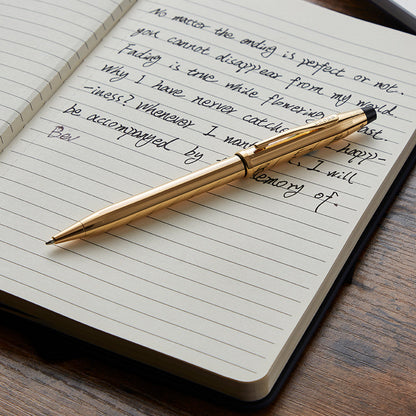 No matter the ending is perfect or not.
you cannot disappear from my world.
Fading is true while flowering
Why I have nerver catche happ-
-iness? Whenever I I will
be accompanyed by emory of.
Bev